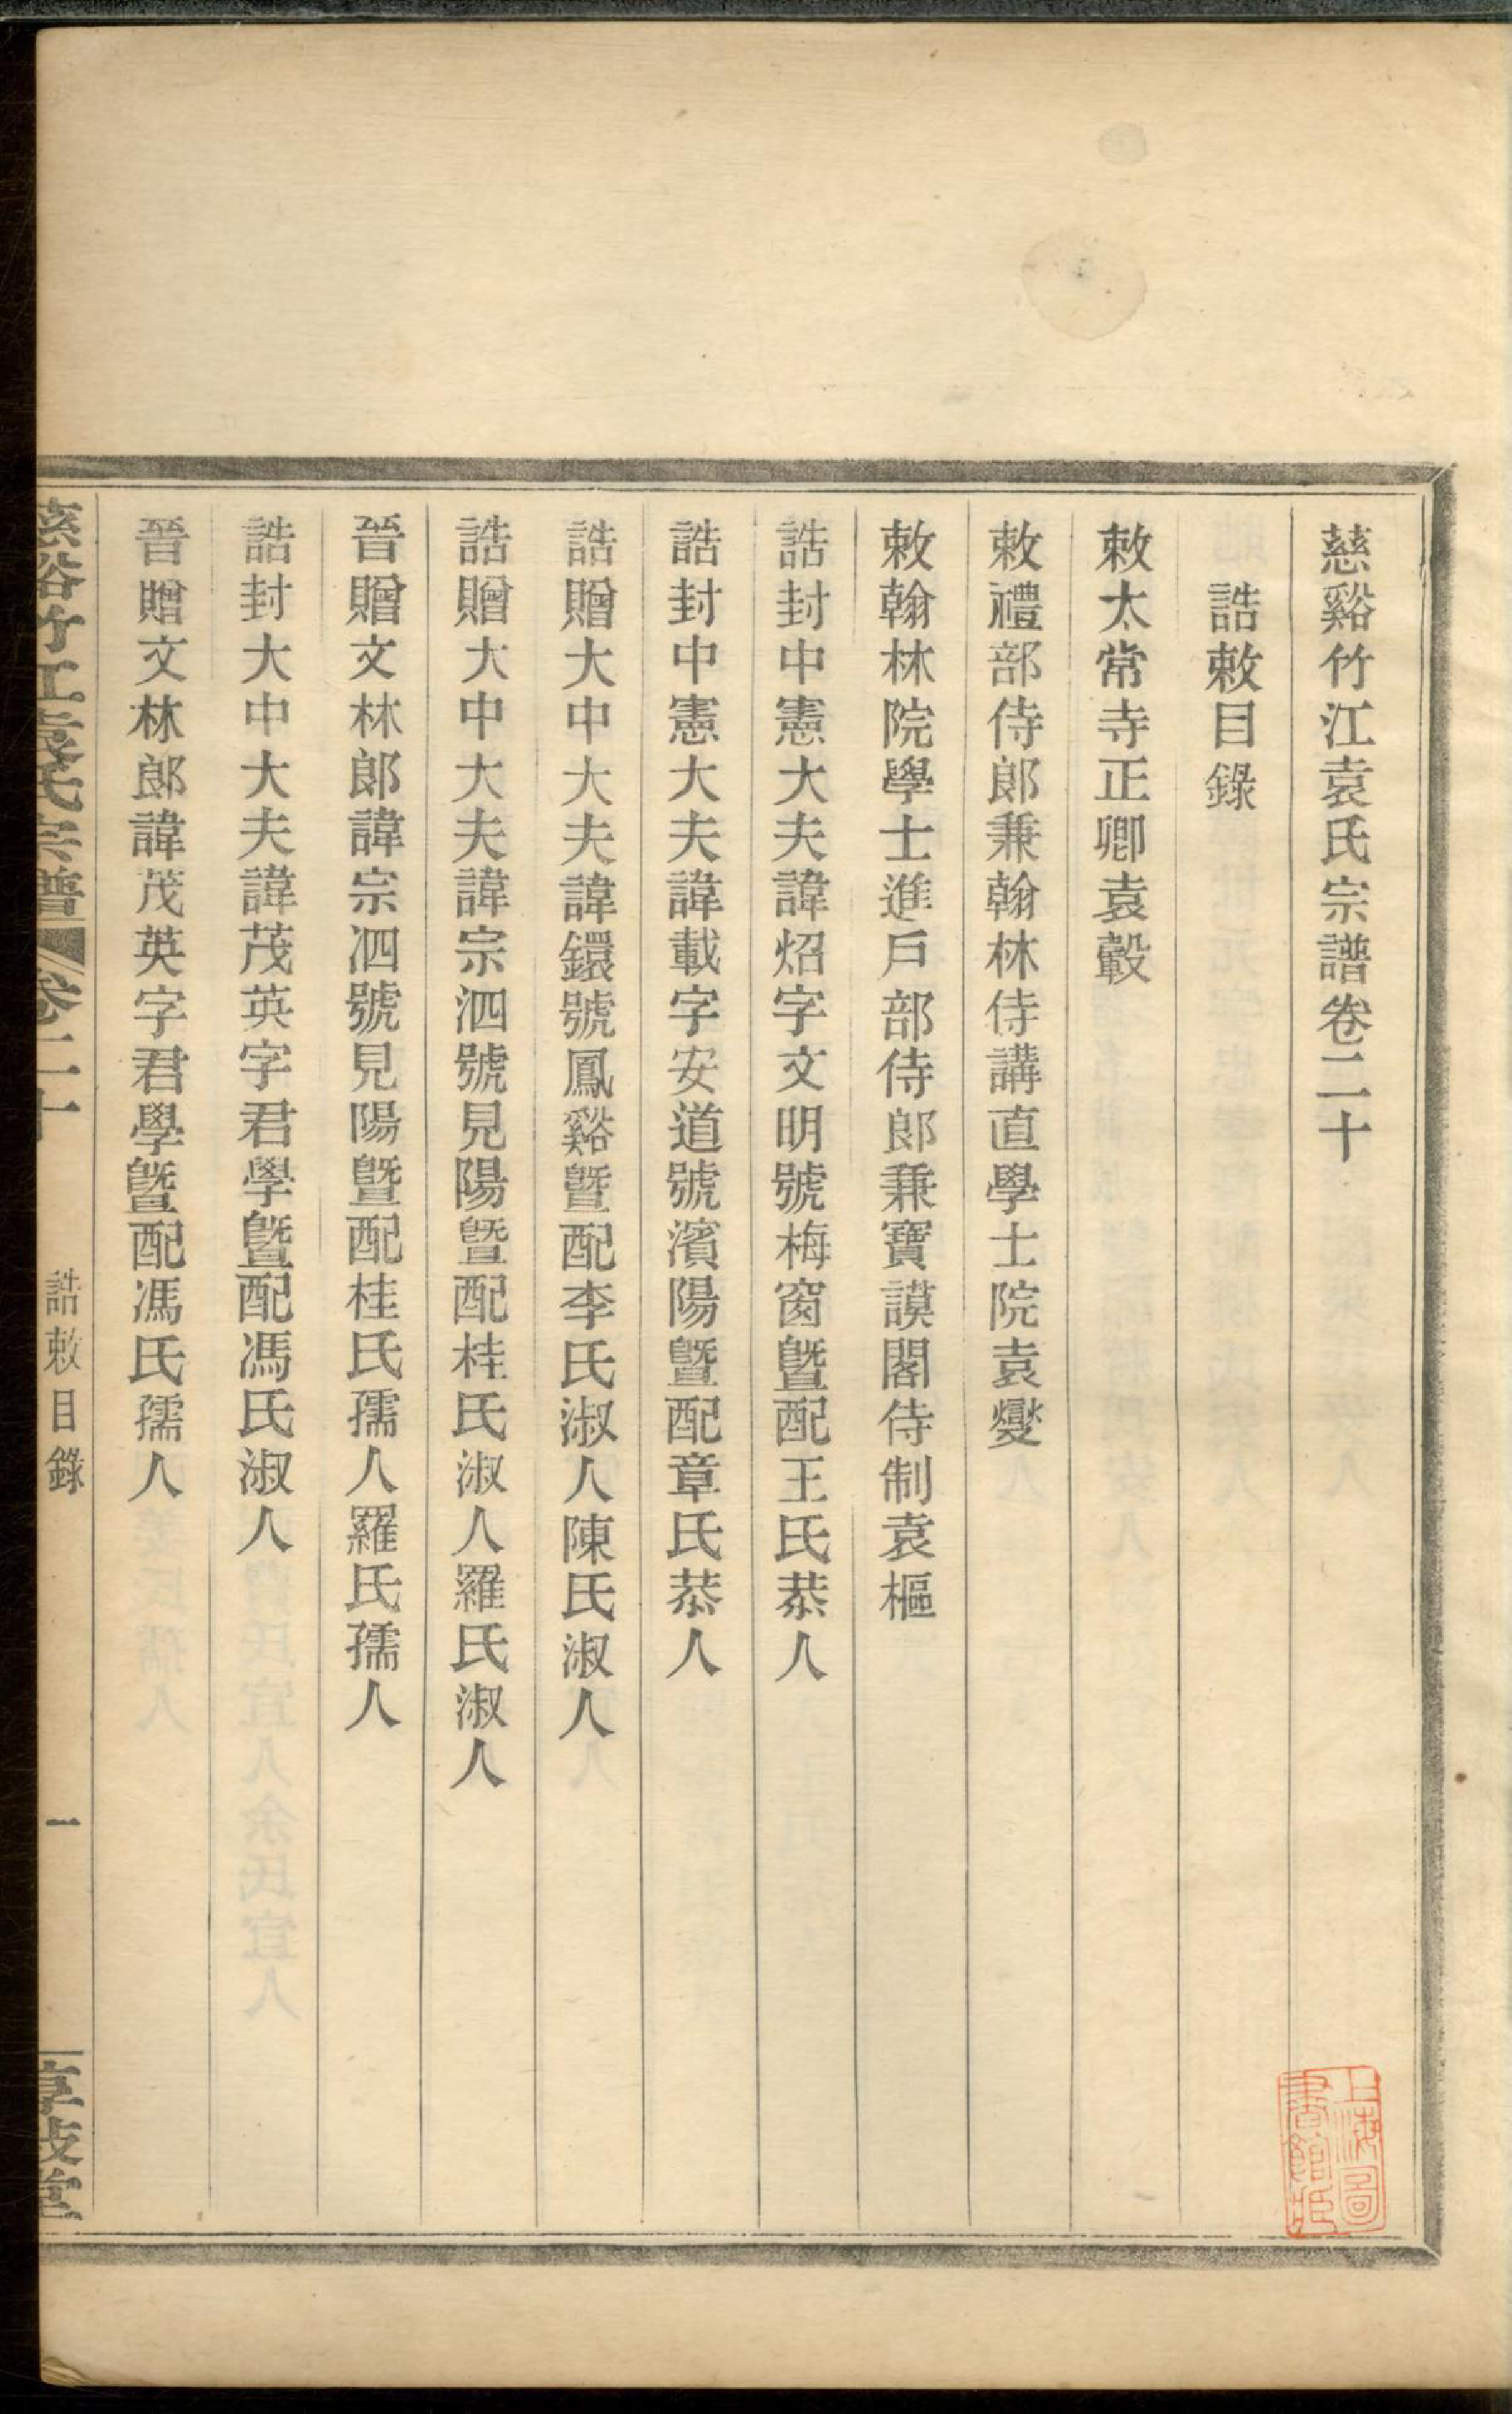 慈谿竹江袁氏宗譜卷二十
誥敕目錄
敕太常寺正卿袁轂
敕禮部侍郎兼翰林侍講直學士院袁燮
敕翰林院學士進戶部侍郎兼寶謨閣侍制袁樞
誥封中憲大夫諱炤字文明號梅窗曁配王氏恭人
誥封中憲大夫諱載字安道號濱陽曁配章氏恭人
誥贈大中大夫諱鐶號鳳谿曁配李氏淑人陳氏淑人
誥贈大中大夫諱宗泗號見陽曁配桂氏淑人羅氏淑人
晉贈文林郎諱宗泗號見陽曁配桂氏孺人羅氏孺人
誥封大中大夫諱茂英字君學曁配馮氏淑人
晉贈文林郎諱茂英字君學曁配馮氏孺人
慈谿竹江袁氏宗譜 卷二十 誥敕目錄 一 享敍堂
上海圖書館藏